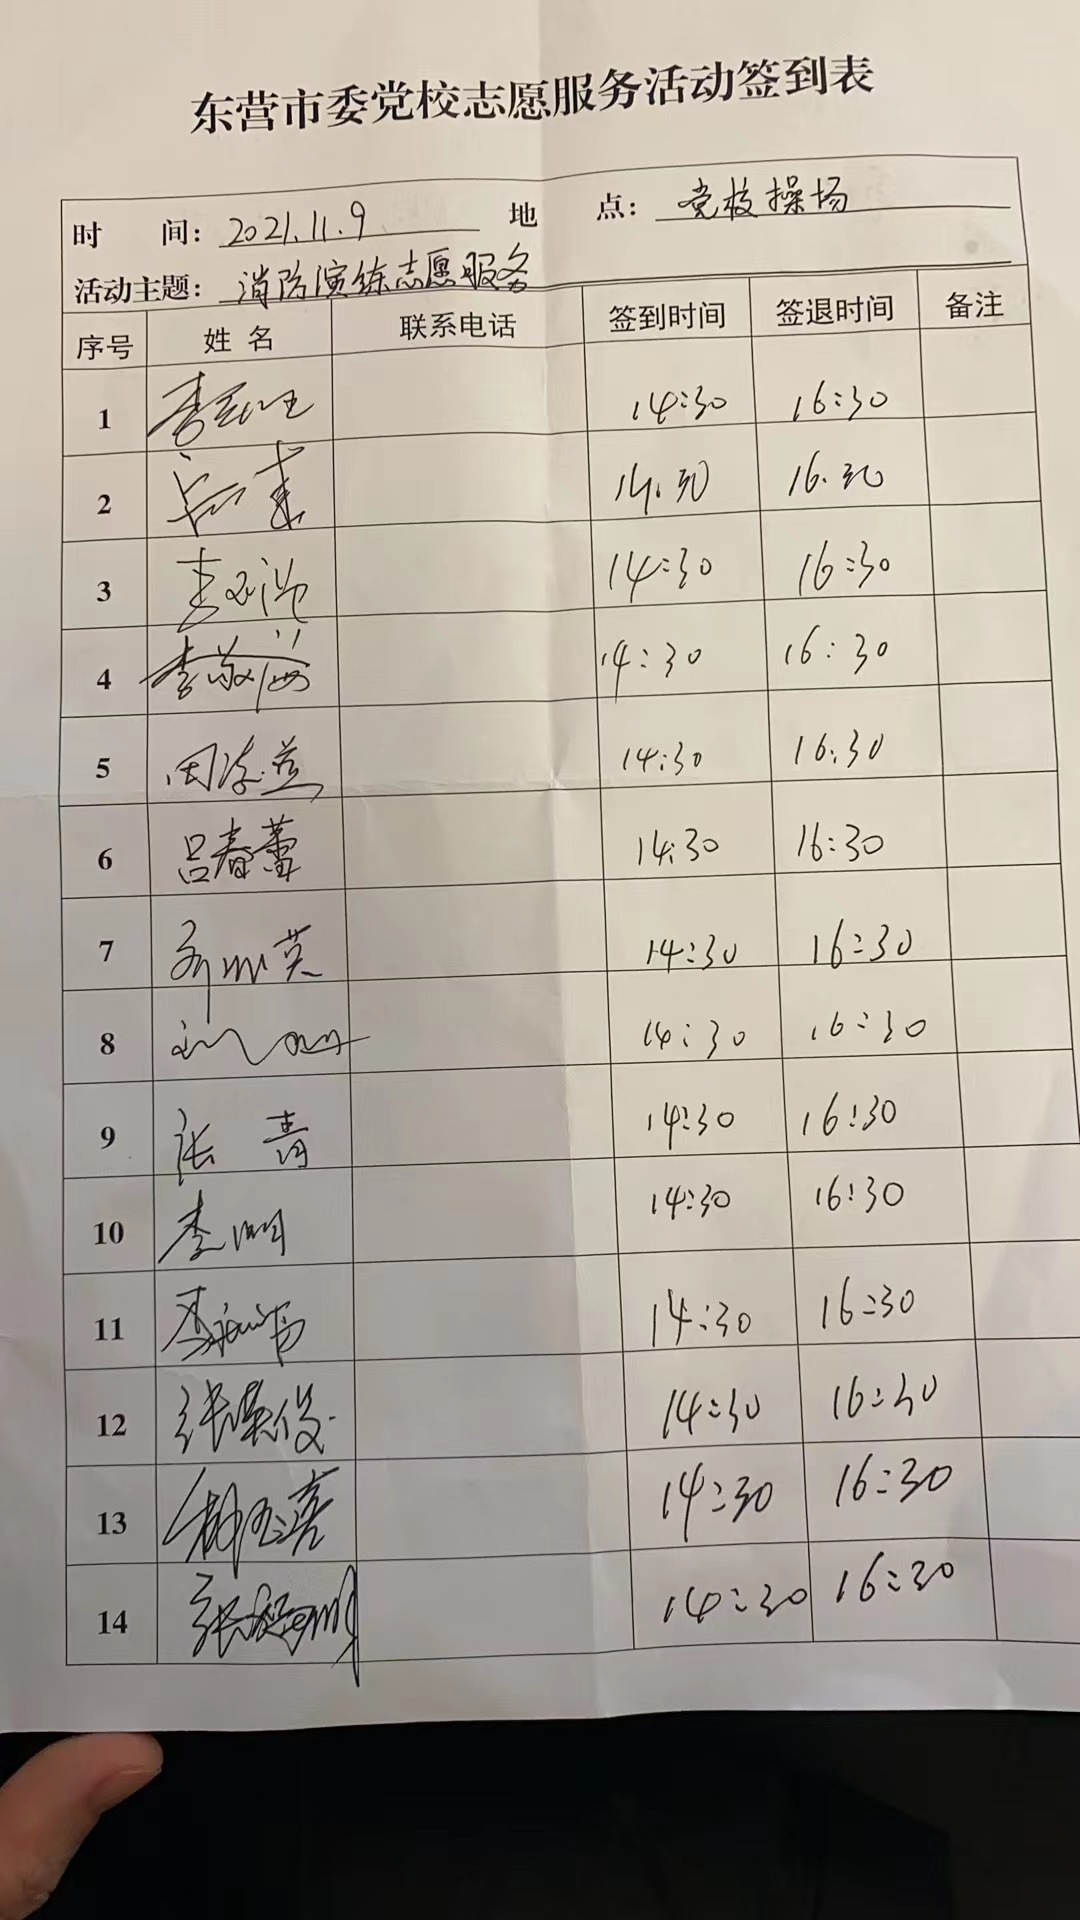 东营市委党校志愿服务活动签到表
时 间：2021.11.9 地 点：党校操场
活动主题：消防演练志愿服务
序号 姓 名 联系电话 签到时间 签退时间 备注
1 14:30 16:30
2 14.30 16.30
3 14:30 16:30
4 李 14:30 16:30
5 周 14:30 16:30
6 吕春蕾 14:30 16:30
7 英 14:30 16:30
8 刘 14:30 16:30
9 张 青 14:30 16:30
10 李明 14:30 16:30
11 李 14:30 16:30
12 张荣俊 14:30 16:30
13 14:30 16:30
14 张 14:30 16:30